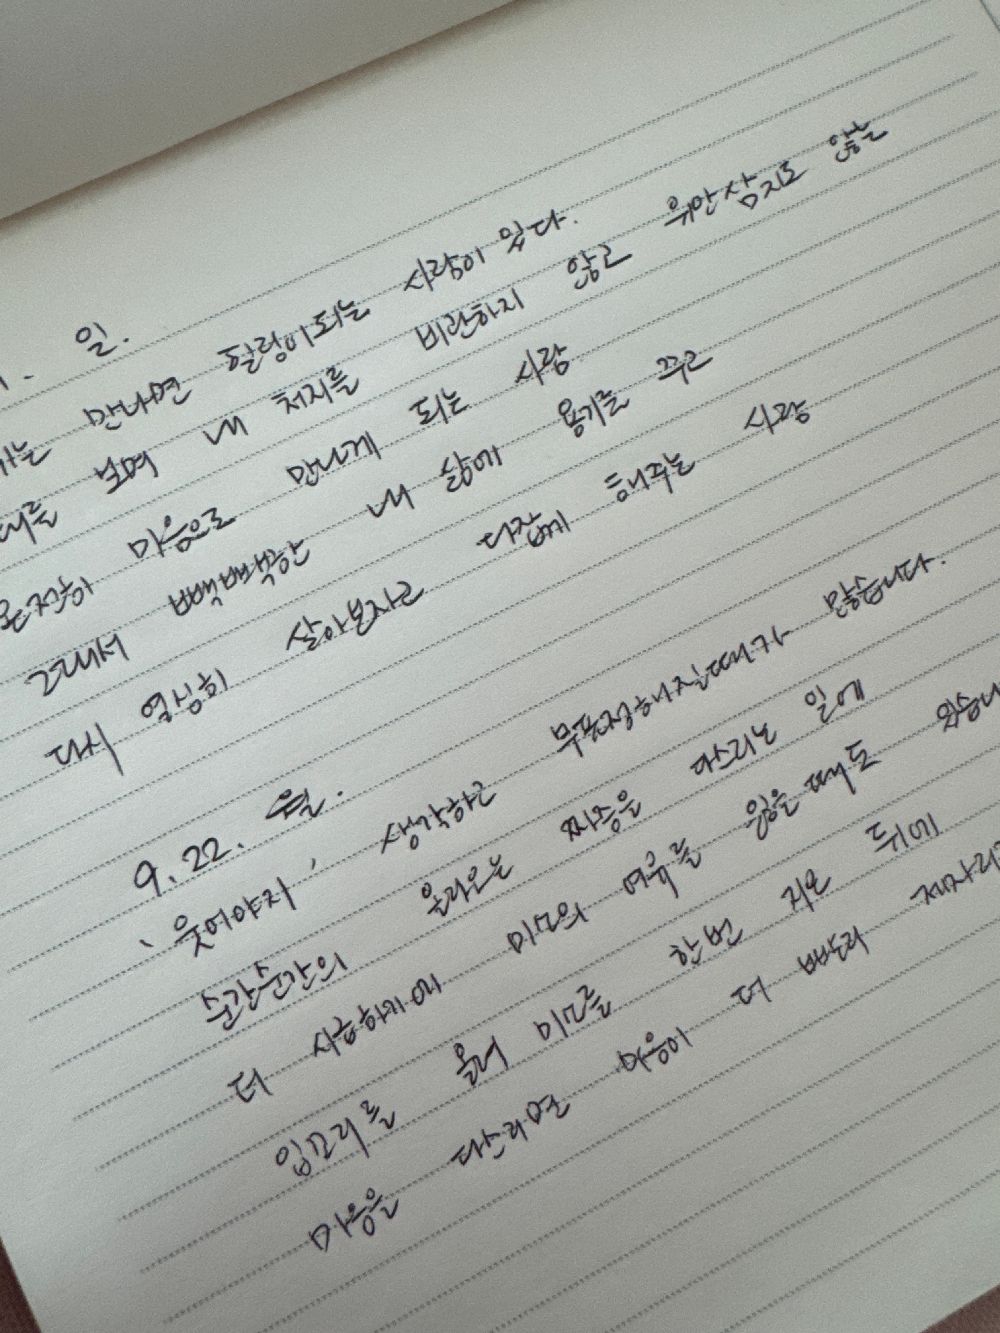 일.
만나면 힐링이되는 사람이 있다.
보며 내 처지를 비관하지 않고 위안삼지도 않는
온전히 마음으로 만나게 되는 사람
그래서 빽빽한 내 삶에 용기를 주고
다시 열심히 살아보자고 다짐케 해주는 사람
9. 22. 월.
'웃어야지' 생각하고 무표정해질때가 많습니다.
순간순간의 올라오는 짜증을 다스리는 일에
더 시급하기에 미소의 여유를 잃을때도 있습니
입꼬리를 올려 미소를 한번 지은 뒤에
마음을 다스리면 마음이 더 빨리 제자리